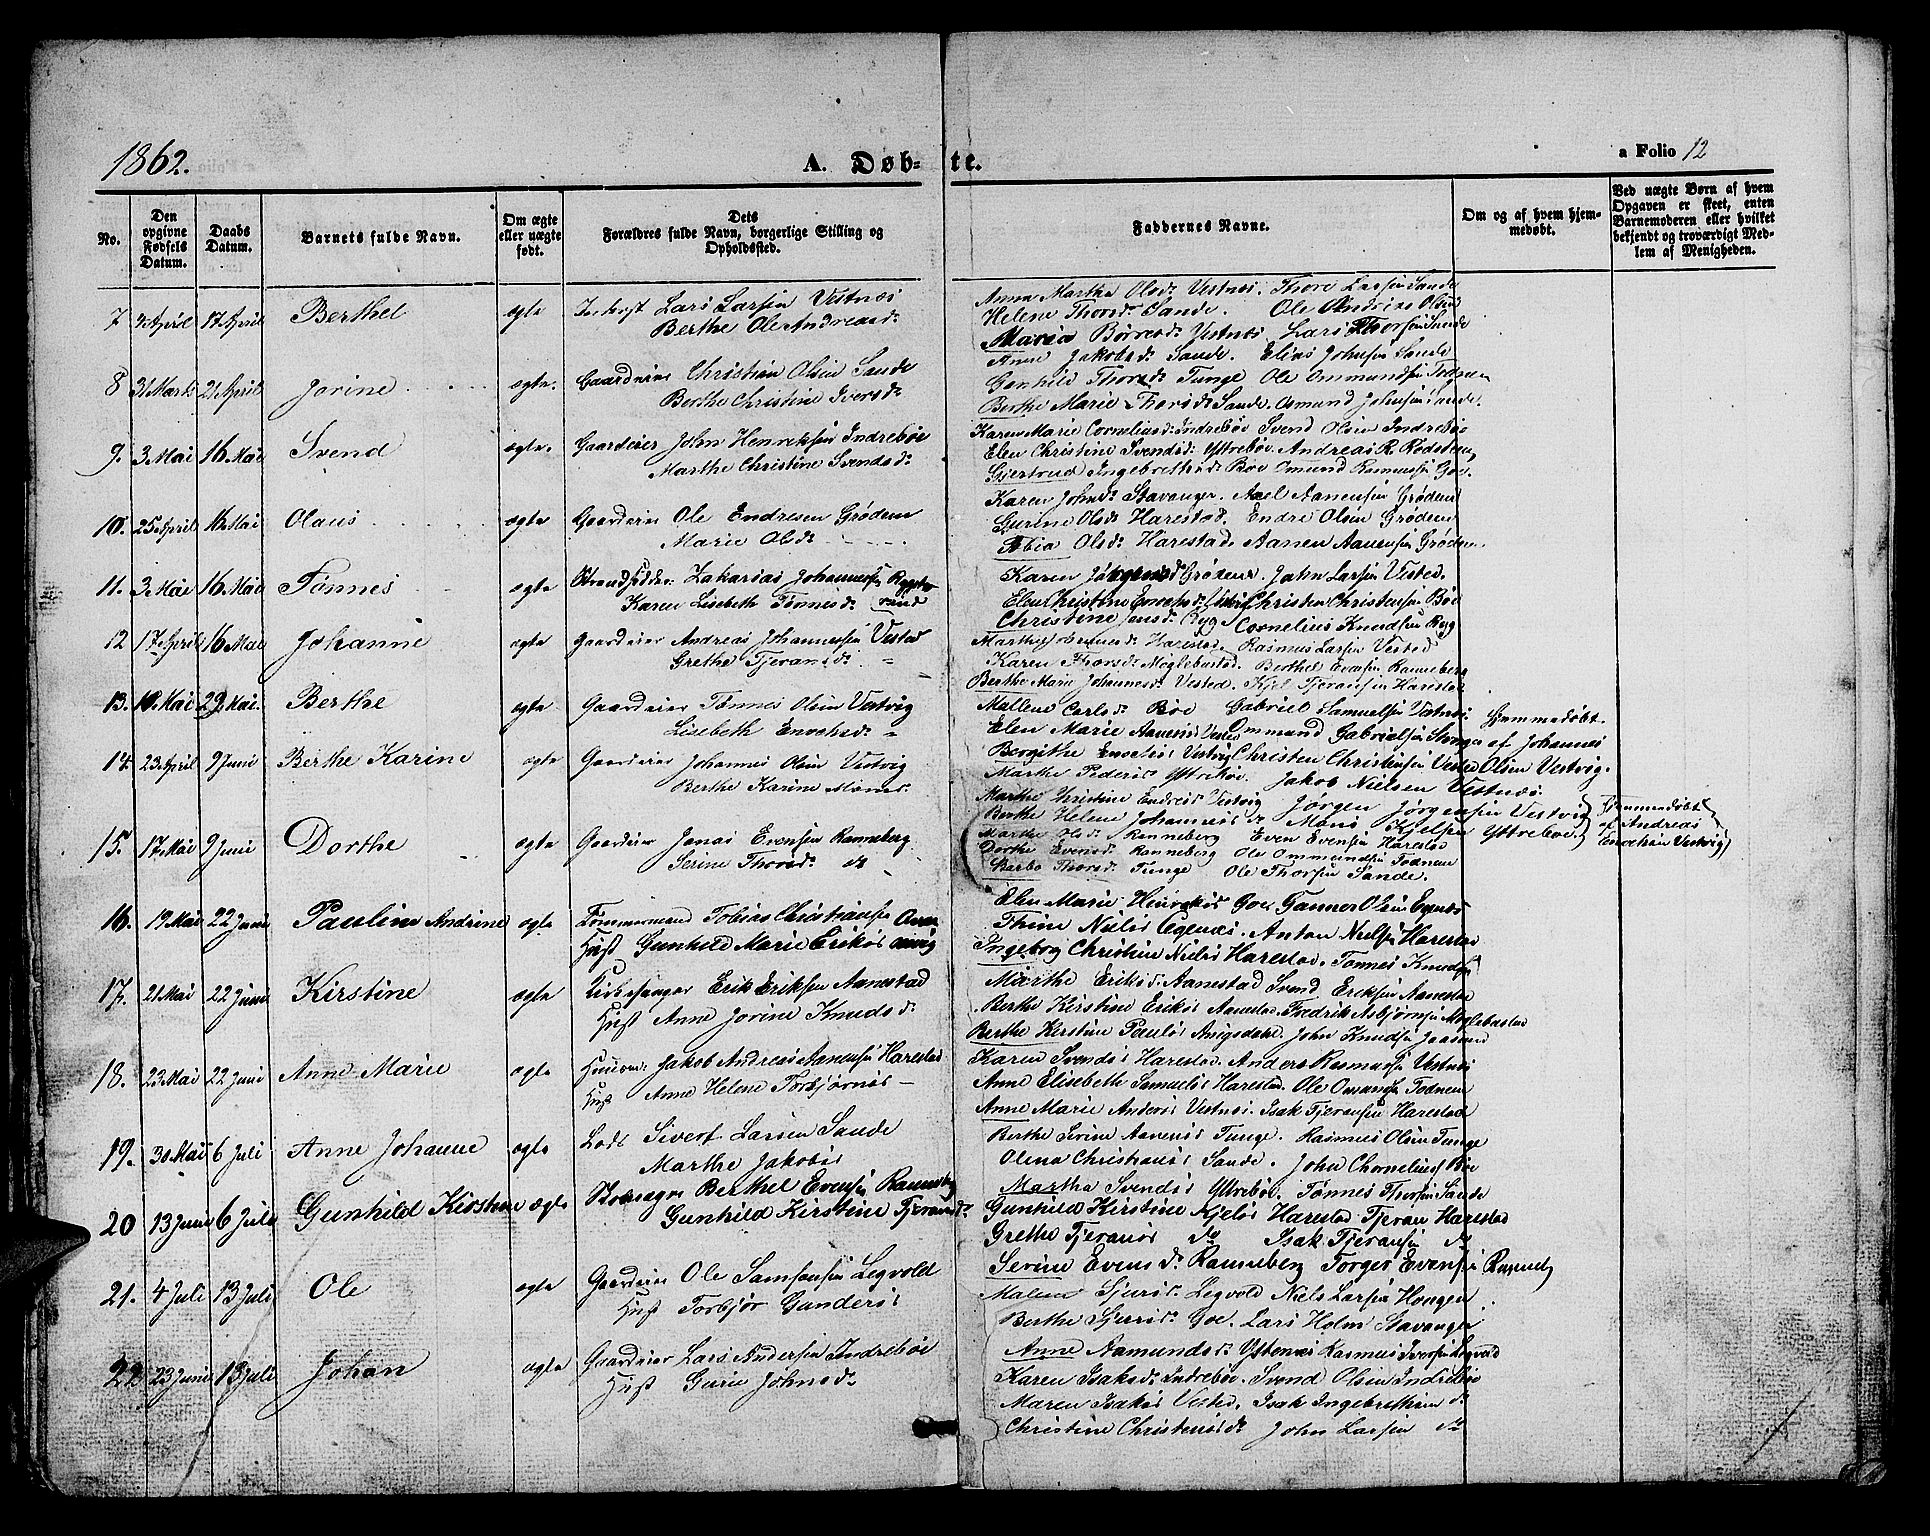 1862.
A. Døb-
te.
a Folio 12
No.
Den opgivne Fødsels Datum.
Daabs Datum.
Barnets fulde Navn.
Om ægte eller uægte født.
Dets Forældres fulde Navn, borgerlige Stilling og Opholdssted.
Faddernes Navne.
Om og af hvem hjemmedøbt.
Ved uægte Børn af hvem Opgaven er skeet, enten Barnemoderen eller hvilket bekjendt og troværdigt Medlem af Menigheden.
7 4 April 17 April Berthel ægte Lars Larsen Vestnæs
Berthe Ole Andreasd.
Anna Martha Olsd. Vestnæs. Thore Larsen Sande
Helene Thorsd. Sande. Ole Andreas Olsen
Maria Børresd. Vestnæs Lars Thorsen Sande
Anne Jakobsd. Sande. Elias Johnsen Sande
8 31 Marts 21 April Jorine ægte. Gaardeier Christian Olsen Sande
Berthe Christine Iversd.
Gunhild Thorsd. Tunge Ole Ommundsen Todnem
Berthe Marie Thorsd. Sande. Osmund Johnsen Sande.
9. 3 Mai 16 Mai Svend ægte. Gaardeier John Henriksen Indrebøe
Marthe Christine Svendsd.
Karen Marie Corneliusd. Indrebøe Svend Olsen Indrebøe
Elen Christine Svendsd. Yttrebøe. Andreas R.
Gjertrud Ingebretsd. Bøe Omund Rasmussen Goe.
10. 25 April 16 Mai Olaus ægte Gaardeier Ole Endresen Grødem
Marie Olsd.
Karen Johnsd. Stavanger. Axel Aanensen Grødem
Gurine Olsd. Harestad. Endre Olsen Grødem
Tobia Olsd. Harestad Aanen Aanensen Grødem
11. 3 Mai 16 Mai Tønnes ægte Strandsidder Zakarias Johannesen
Karen Lisebeth Tønnesd.
Karen Grødem. John Larsen Vested.
Elen Christine Enochsd. Christen Christensen Bøe
Christine Jensd. Ryg Cornelius Knudsen Ryg
12 17 April 16 Mai Johanne ægte Gaardeier Andreas Johannesen Vested
Grethe Tjeransd. "
Marthe Johannesd. Harestad. Rasmus Larsen Vested
Karen Thorsd. Meglebustad. Berthel Evensen Ranneberg
Berthe Marie Johannesd. Vested. Kjel Tjeransen Harestad
13. 18 Mai 29 Mai. Berthe ægte Gaardeier Tønnes Olsen Vestvig
Lisebeth Enochsd. "
Mallene Carlsd. Bøe Gabriel Samuelsen Vestnæs.
Elen Marie Aanensd. Vested Ommund Gabrielsen
Bergithe Enochsd. Vestvig Christen Christensen Vested
Hjemmedøbt.
af Johannes
Olsen Vestvig.
14. 23 April 9 Juni Berthe Karine ægte Gaardeier Johannes Olsen Vestvig
Berthe Karine Monsd.
Marthe Pedersd. Yttrebøe. Jakob Nielsen Vestnæs.
Marthe Christine Endresd. Vestvig Jørgen Jørgensen Vestvig
Berthe Helene Johannesd. do Mons Kjelsen Yttrebøe.
Hjemmedøbt
af Andreas
Enochsen Vestvig
15. 17 Mai 9 Juni Dorthe ægte Gaardeier Jonas Evensen Ranneberg
Serine Thorsd. do
Marthe Olsd. Ranneberg Even Evensen Harestad
Dorthe Evensd. Ranneberg Ole Ommundsen Todnem
Barbo Thorsd. Tunge Ole Thorsen Sande.
16. 19 Mai 22 Juni Pauline Andrine ægte Tømmermand Tobias Christiansen
Hust Gunhild Marie Eriksd.
Elen Marie Henriksd. Goe Gunner Olsen Egenæs
Thine Nielsd. Egenæs. Anton Nielsen Harestad
Ingeborg Christine Nielsd. Harestad. Tønnes Knudsen
17. 21 Mai 22 Juni Kirstine ægte Kirkesanger Erik Eriksen Aanestad
Hust Anne Jorine Knudsd.
Marthe Eriksd. Aanestad Svend Eriksen Aanestad
Berthe Kirstine Eriksd. Aanestad. Fredrik Asbjørnsen Meglebustad
Berthe Kirstine Paulsd. John Knudsen
18. 23 Mai 22 Juni Anne Marie ægte Huusm. Jakob Andreas Aanensen Harestad
Hust Anne Helene Torbjørnsd. —
Karen Svendsd. Harestad. Anders Rasmussen Vestnæs
Anne Elisebeth Samuelsd. Harestad. Ole Omundsen Todnem
Anne Marie Andersd. Vestnæs. Isak Tjeransen Harestad
19. 30 Mai 6 Juli Anne Johanne ægte Lods Sivert Larsen Sande
Marthe Jakobsd.
Berthe Serine Aanensd. Tunge. Rasmus Olsen Tunge
Olena Christiansd. Sande. John Chorneliusen Bøe
Martha Svendsd. Yttrebøe. Tønnes Thorsen Sande
20 13 Juni 6 Juli Gunhild Kirstine ægte Berthel Evensen Ranneberg
Gunhild Kirstine Tjeransd.
Gunhild Kirstine Kjelsd. Harestad Tjeran Harestad
Grethe Tjeransd. do Isak Tjeransen do
Serine Evensd. Ranneberg Torger Evensen Ranneb.
21. 4 Juli 13 Juli Ole ægte Gaardeier Ole Samsonsen Legvold
Hust Torbjør Gundersd.
Malene Sjursd. Legvold Niels Larsen Hougen
Berthe Sjursd. Goe. Lars Holm Stavanger
Anne Aamundsd. Ystenæs Rasmus Iversen Legvold
22 23 Juni 13 Juli Johan ægte Gaardeier Lars Andersen Indrebøe
Hust Gurie Johnsd.
Karen Isaksd. Indrebøe. Svend Olsen Indrebøe
Maren Isaksd. Vested. Isak Ingebrethsen do
Christine Christensd. do John Larsen do